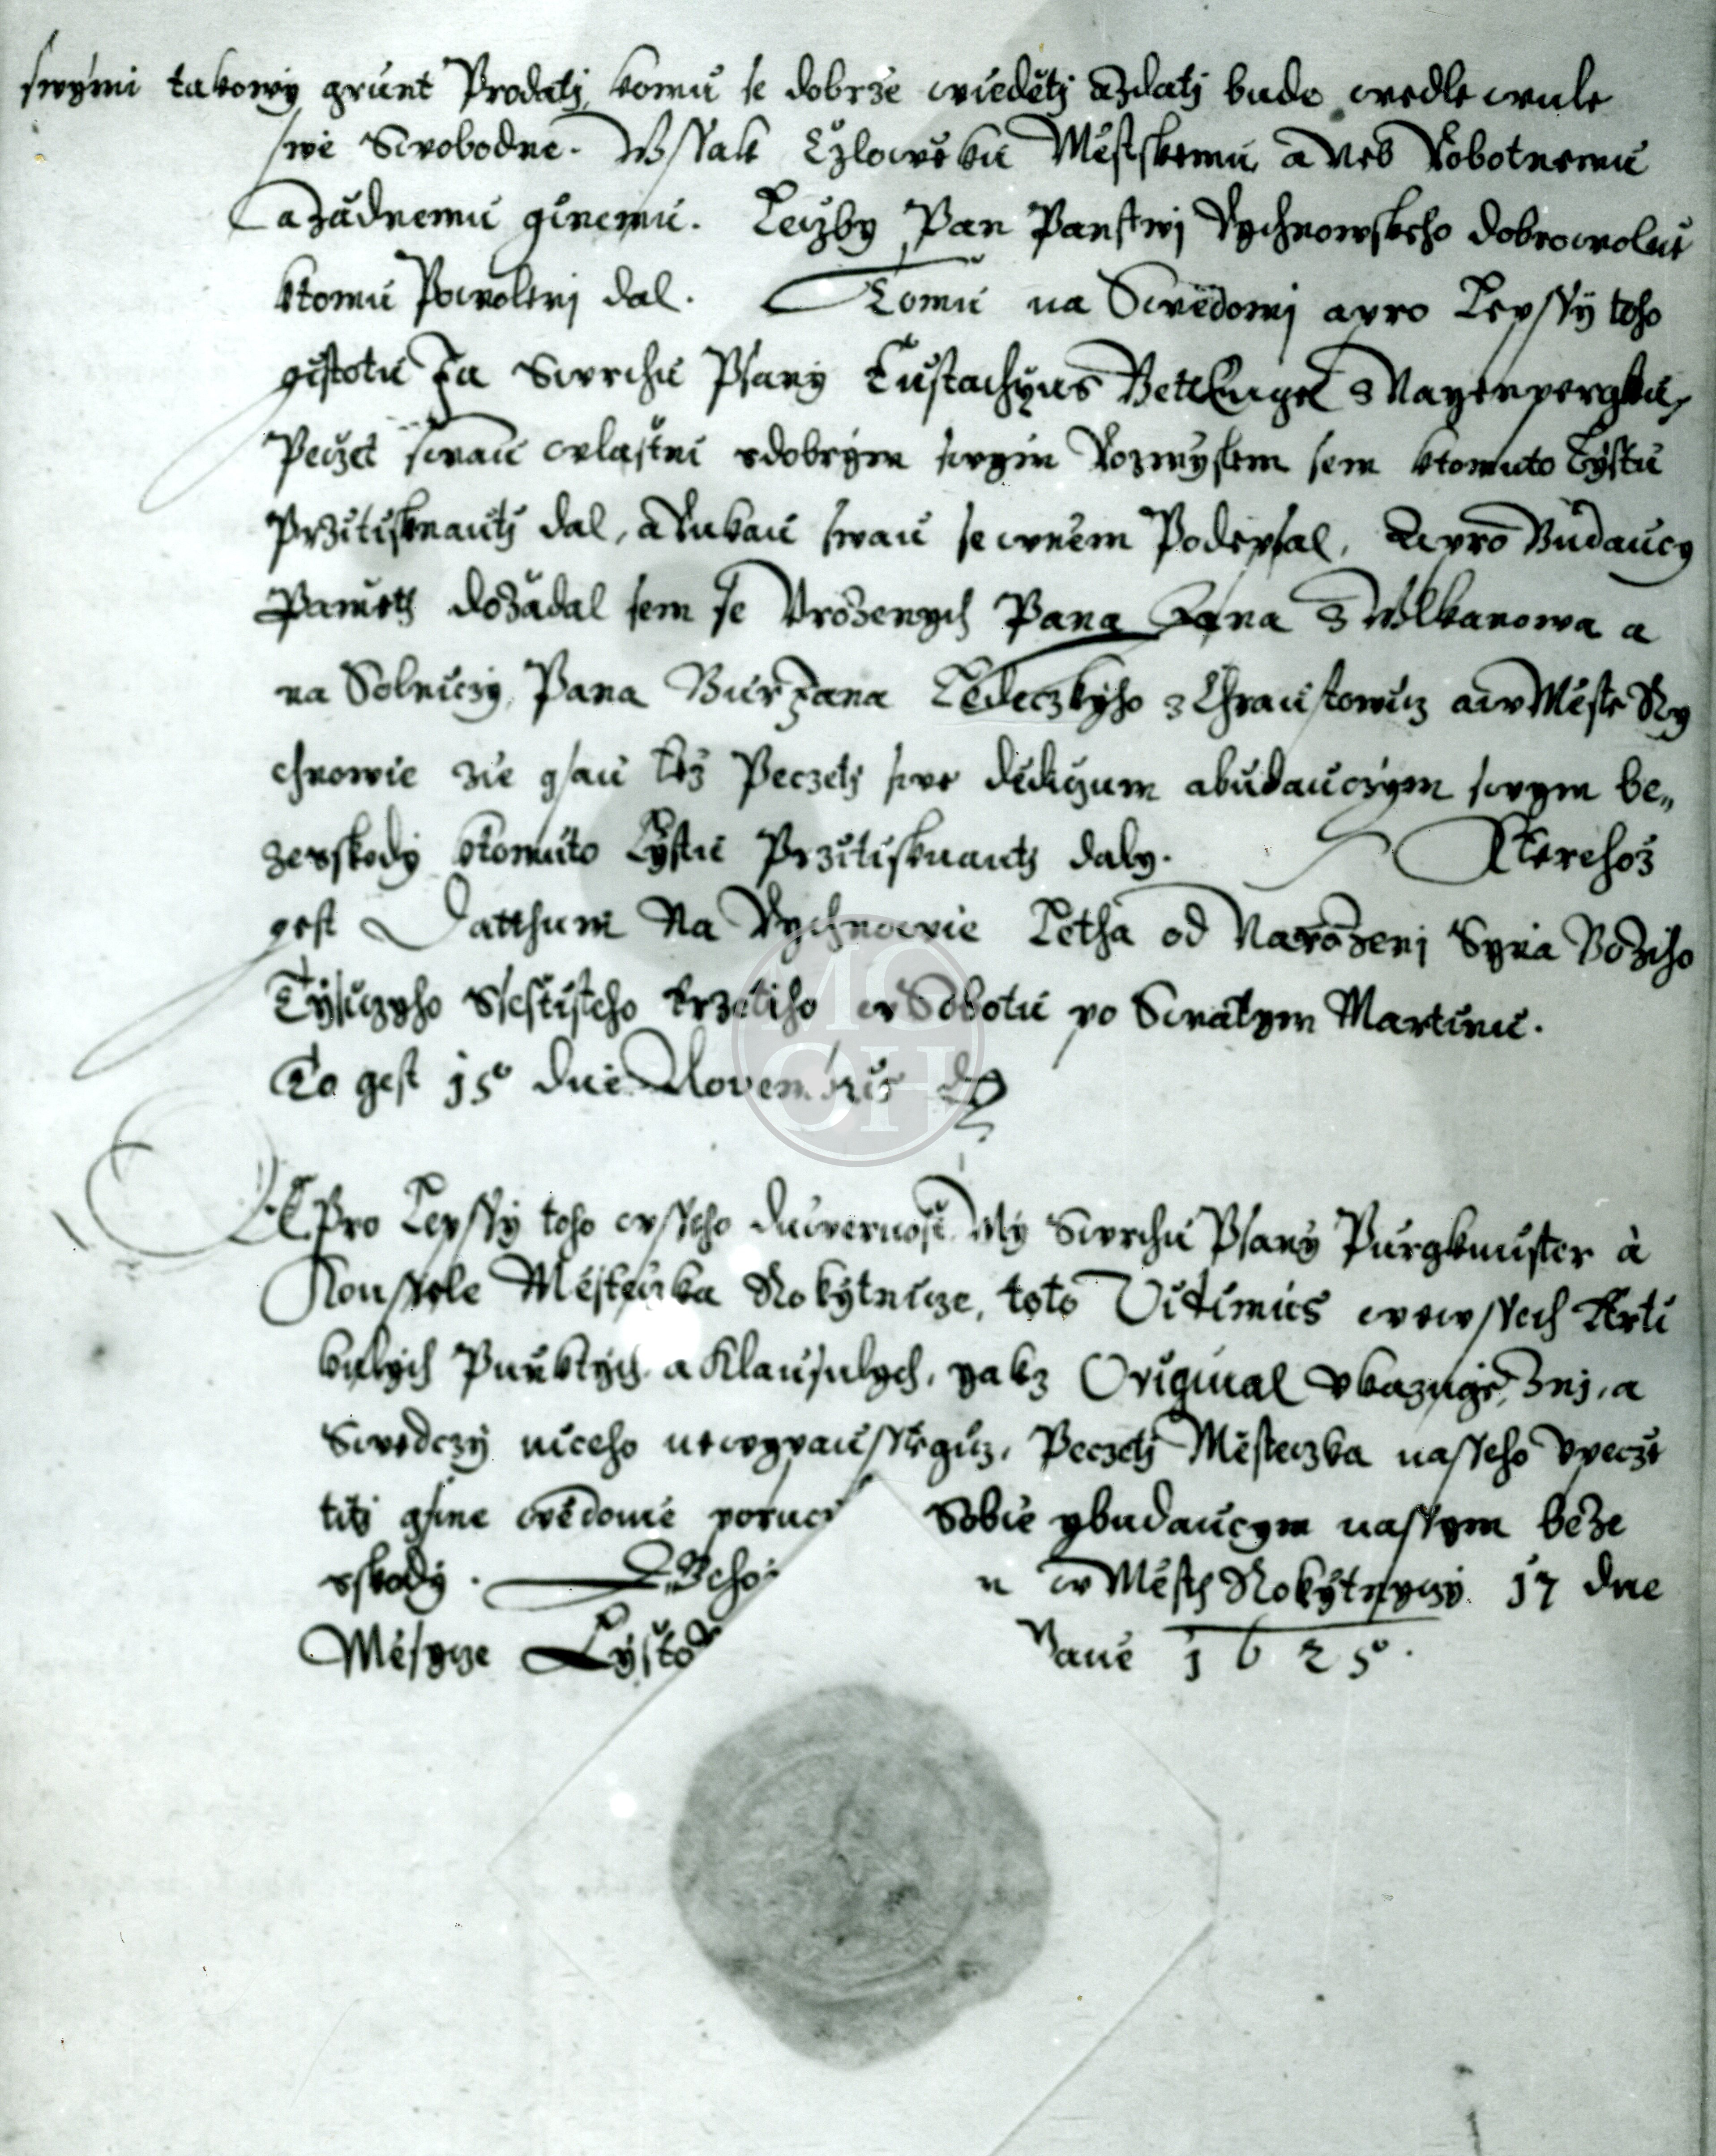 swymi takowy grunt Prodati komu se dobrze wiedeti a zdati bude wedle wule
swe Swobodne. Wssak Czloweku Mestskemu a neb Robotnemu
a zadnemu ginemu. Leczby Pan Panstwj Rychnowskeho dobrowolne
ktomu Powolenj dal. Tomu na Swedomj a pro Lepssy toho
gistotu Ja Swrchu Psany Eustachyus Betlengel z Nayenpergku,
Peczet swau wlastni s dobrym swym Rozmyslem sem ktomuto Lystu
Przitisknauti dal, a Rukau swau se wnem Podepsal, A pro Budaucy
Pamet dozadal sem se Urozenych Pana Jana z Wlkanowa a
na Solniczy, Pana Burjana Ledeczkyho z Chraustowicz a w Meste Ry
chnowie zie gsau tez Peczeti swe dediczum a budauczym swym be„
ze sskody ktomuto Lystu Przitisknauti daly. Kterehoz
gest Datthum Na Rychnowie Letha od Narozenj Syna Boziho
Tysyczyho Ssestisteho trzetiho w Sobotu po Swatym Martinu.
To gest 15o dne Novembris
A Pro Lepssy toho wsseho duwernost My Swrchu Psany Purgkmister à
Konssele Mestecska Rokytnicze, toto Vidimus wewssech Arti
kulych Punktych a Klausulych, yakz Original ukazuge, Znj, a
Swedczy niceho newypausstegicz, Peczeti Mesteczka nasseho Upecze
titi gsme wedome poruc Sobie y budaucym nassym beze
sskody. Gehoz n w Meste Rokytnyczy 17 dne
Mesycze Lysto Pane 1625o.
MG
OH